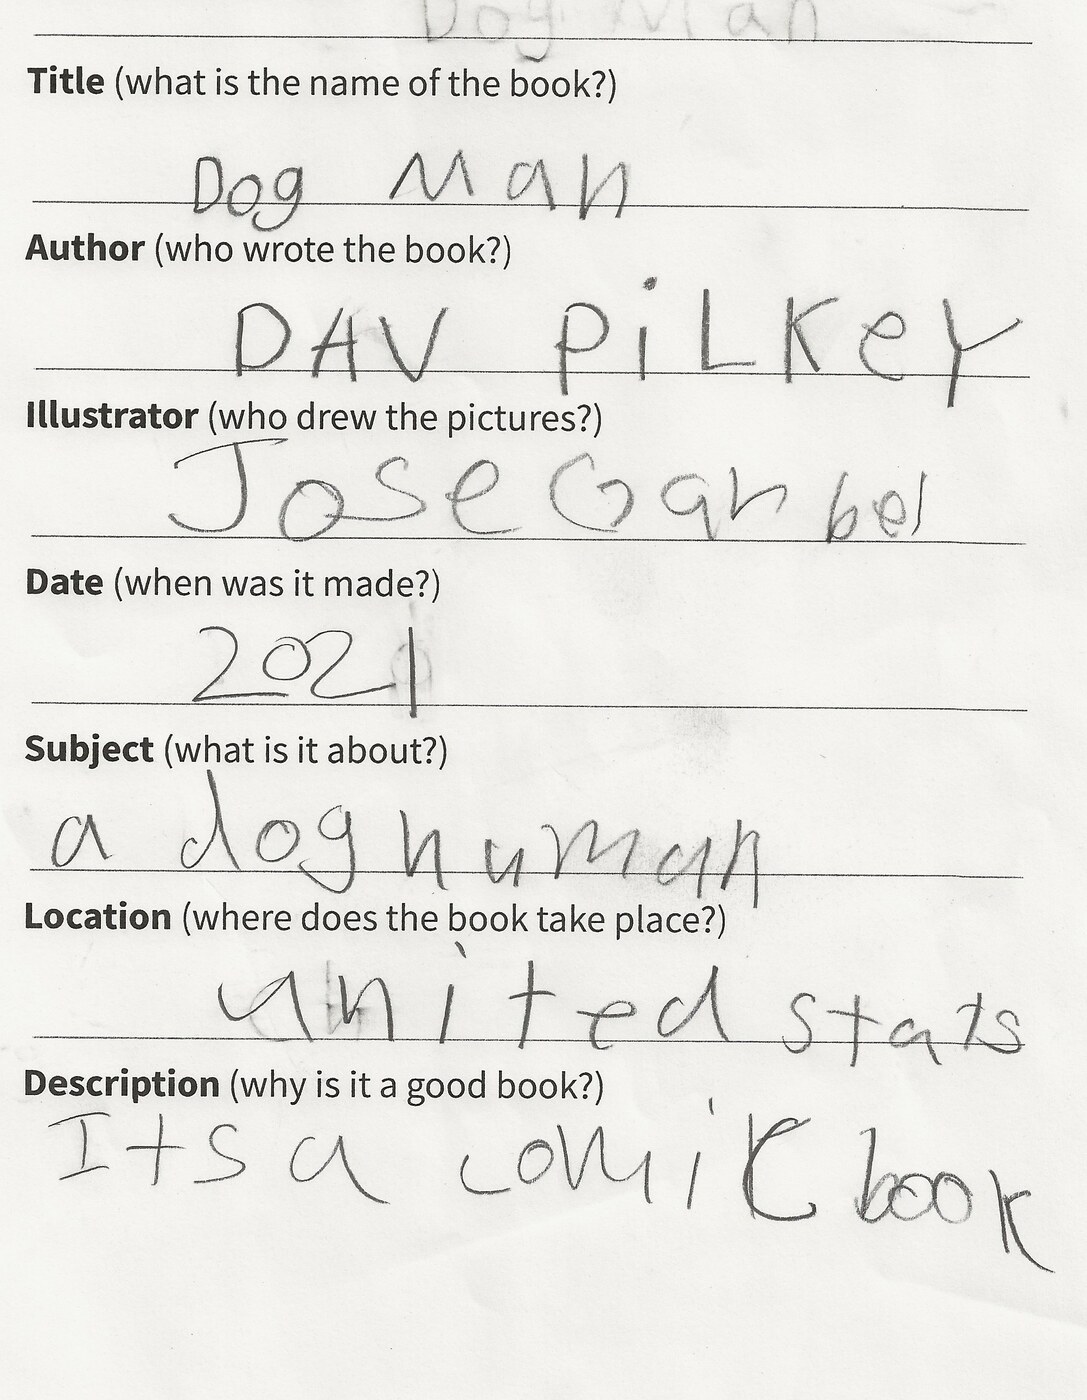 Dog Man
Title (what is the name of the book?)
Dog Man
Author (who wrote the book?)
DAV PiLKey
Illustrator (who drew the pictures?)
Jose Garibel
Date (when was it made?)
2021
Subject (what is it about?)
a dog human
Location (where does the book take place?)
united stats
Description (why is it a good book?)
Its a comic book